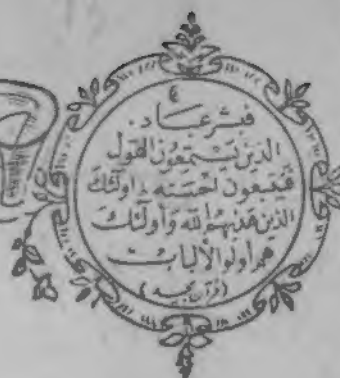 ٤
فبشر عباد.
الذين يستمعون القول
فيتبعون أحسنه، أولئك
الذين هديهم الله وأولئك
هم أولو الألباب
(قرآن مجيد)